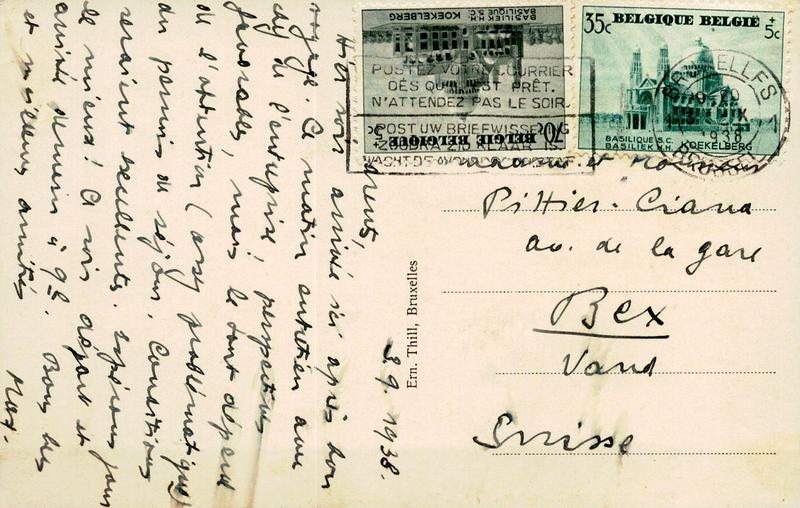 3.9.1938.
Hier soir arrivé ici après bon
voyage. Ce matin entretien avec
de l'entreprise! perspectives
favorables, mais le tout dépend
de l'attention (assez problématique)
du permis de séjour. Conditions
seraient excellentes. Espérons pour
le mieux! Ce soir départ et
arrivée demain à 9h. Bons bec
et meilleures amitiés
Max.
Ern. Thill, Bruxelles
BASILIQUE S.C.
BASILIEK H.H. KOEKELBERG
70c + 5c
BELGIQUE BELGIE
35c BELGIQUE BELGIË + 5c
BASILIQUE S.C.
BASILIEK H.H. KOEKELBERG
POSTEZ VOTRE COURRIER
DÈS QU'IL EST PRÊT.
N'ATTENDEZ PAS LE SOIR.
POST UW BRIEFWISSELING
ZOODRA ZIJ KLAAR IS
WACHT
BRUXELLES
1938
et
Pittier-Ciana
av. de la gare
Bex
Vaud
Suisse